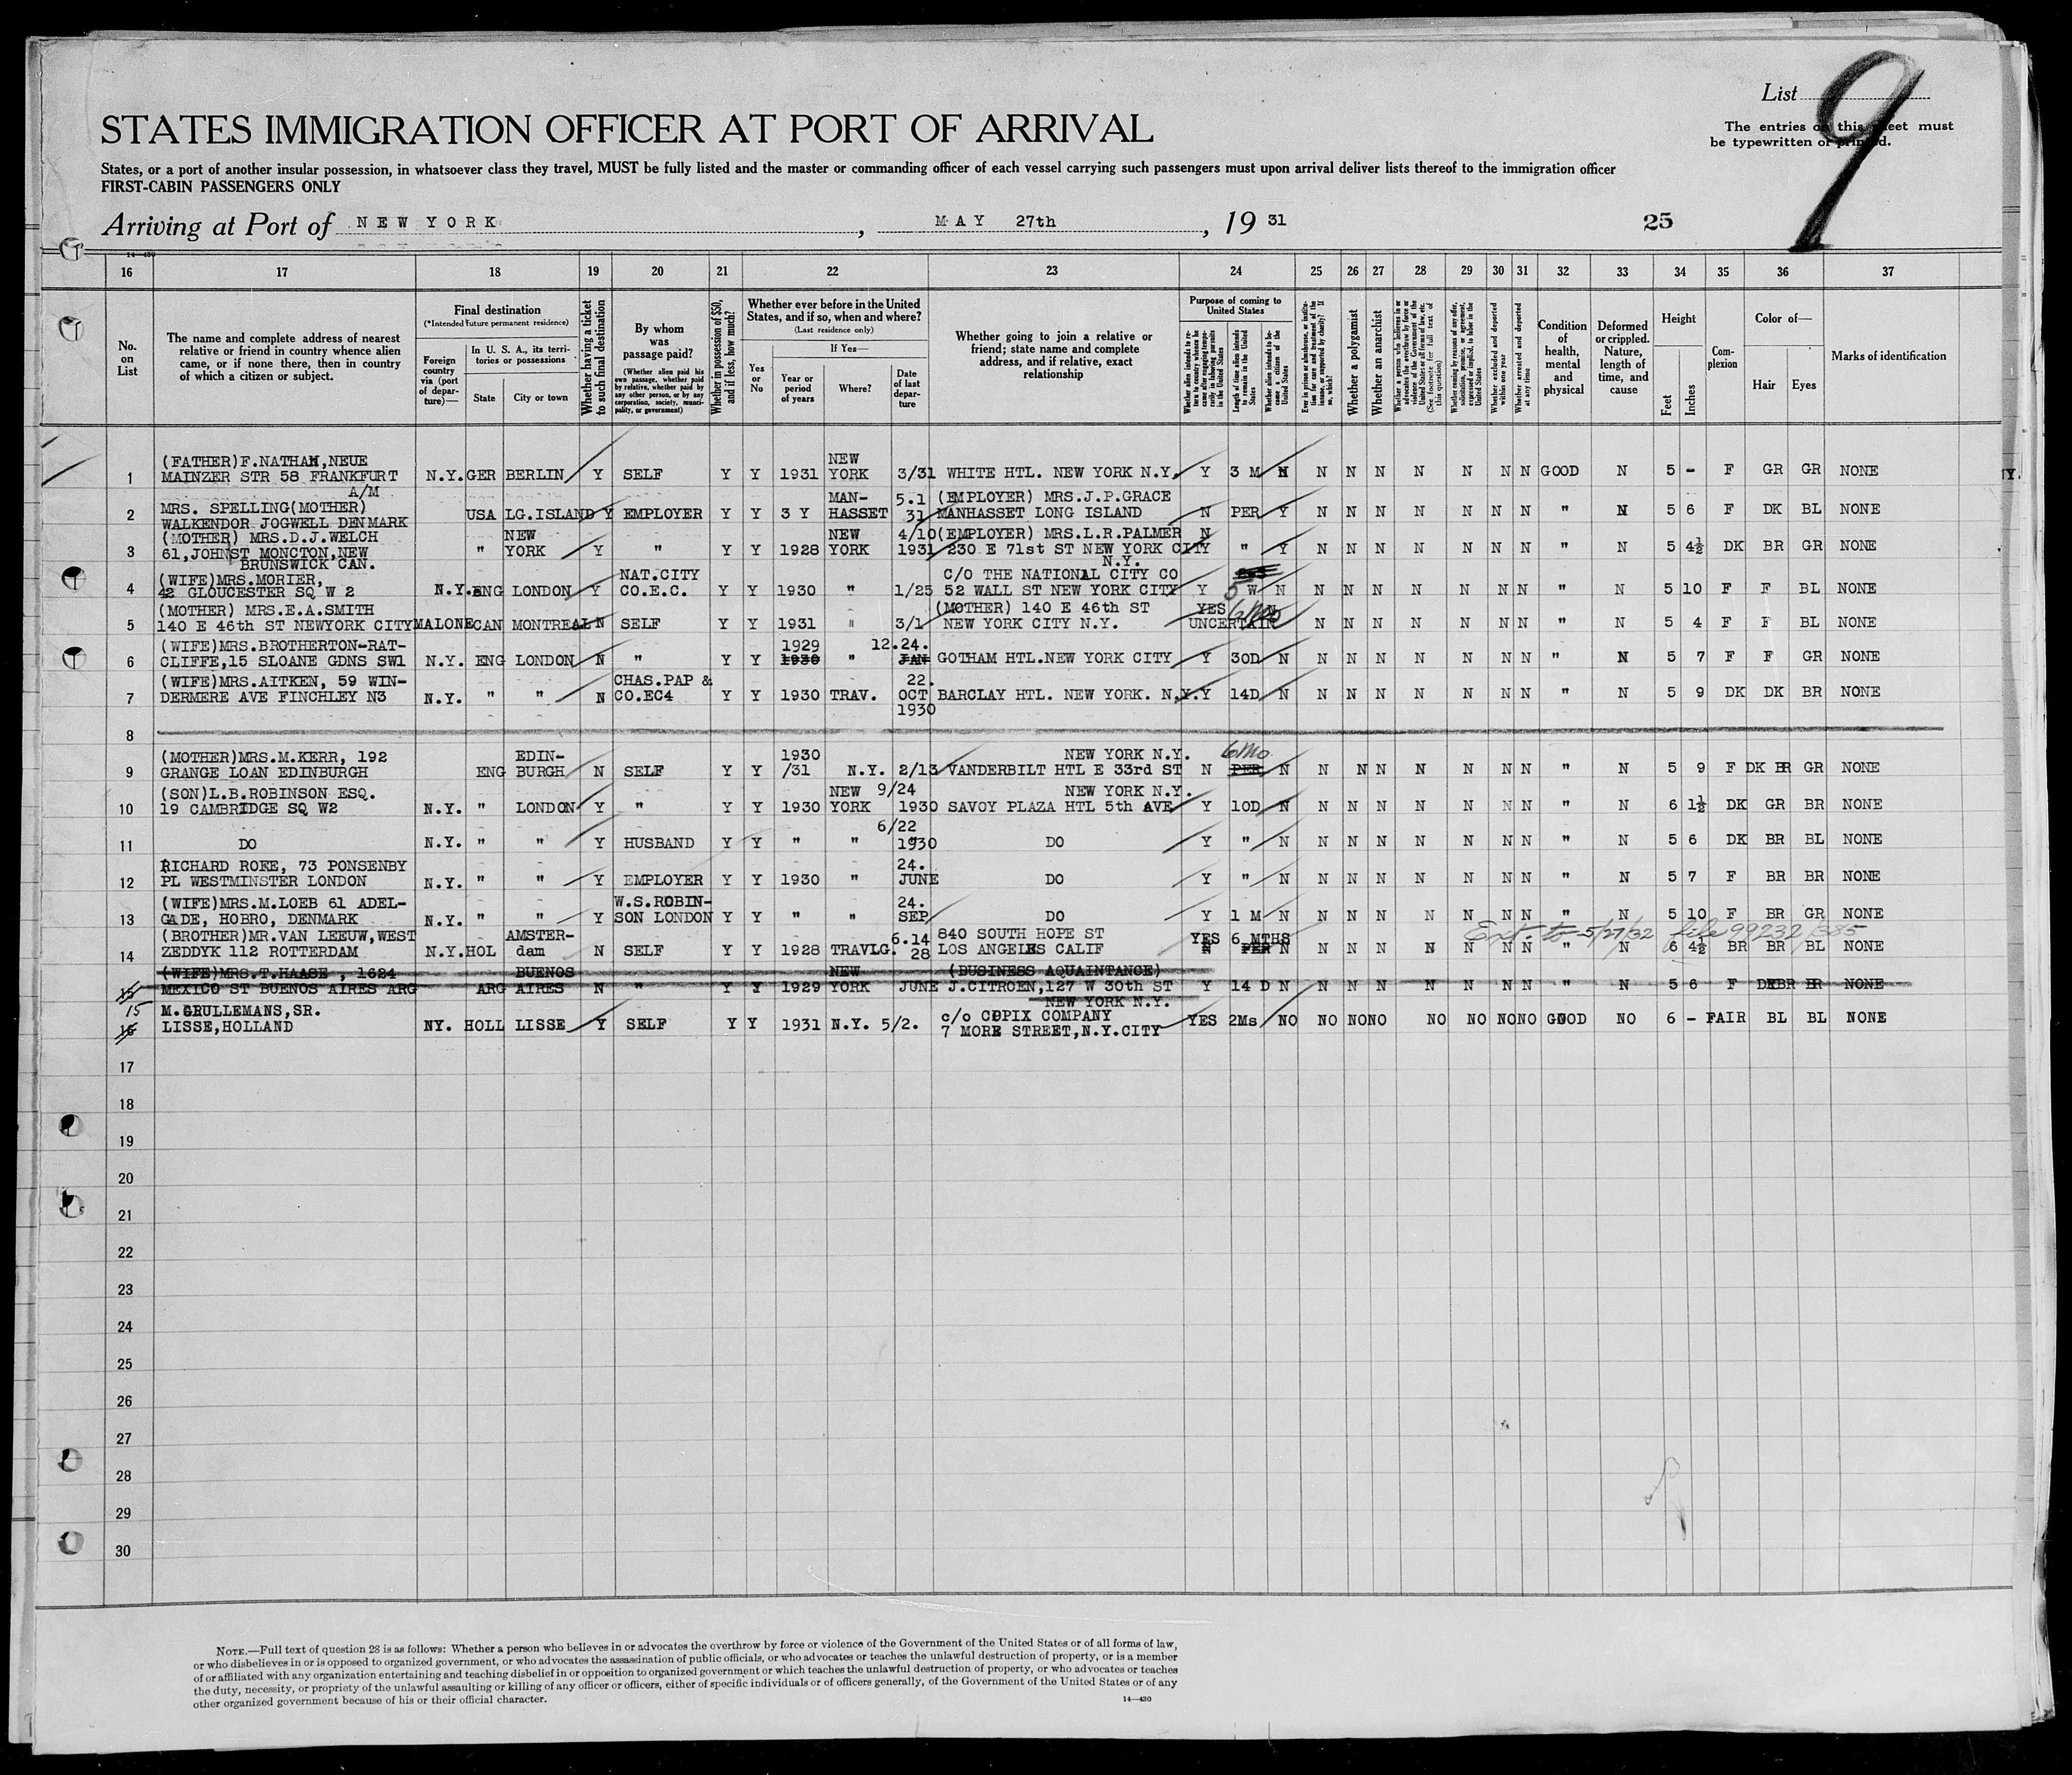 List 9
STATES IMMIGRATION OFFICER AT PORT OF ARRIVAL
The entries on this sheet must
be typewritten or printed.
States, or a port of another insular possession, in whatsoever class they travel, MUST be fully listed and the master or commanding officer of each vessel carrying such passengers must upon arrival deliver lists thereof to the immigration officer
FIRST-CABIN PASSENGERS ONLY
Arriving at Port of NEW YORK, MAY 27th, 19 31
25
14-430
16 17 18 19 20 21 22 23 24 25 26 27 28 29 30 31 32 33 34 35 36 37
No. on List
The name and complete address of nearest relative or friend in country whence alien came, or if none there, then in country of which a citizen or subject.
Final destination
(*Intended future permanent residence)
Foreign country via (port of departure)—
In U. S. A., its territories or possessions
State
City or town
Whether having a ticket to such final destination
By whom was passage paid?
(Whether alien paid his own passage, whether paid by relative, whether paid by any other person, or by any corporation, society, municipality, or government)
Whether in possession of $50, and if less, how much?
Whether ever before in the United States, and if so, when and where?
(Last residence only)
Yes or No
If Yes—
Year or period of years
Where?
Date of last departure
Whether going to join a relative or friend; state name and complete address, and if relative, exact relationship
Purpose of coming to United States
Whether alien intends to return to country whence he came after engaging temporarily in laboring pursuits in the United States
Length of time alien intends to remain in the United States
Whether alien intends to become a citizen of the United States
Ever in prison or almshouse, or institution for care and treatment of the insane, or supported by charity? If so, which?
Whether a polygamist
Whether an anarchist
Whether a person who believes in or advocates the overthrow by force or violence of the Government of the United States or all forms of law, etc. (See footnote for full text of this question)
Whether coming by reasons of any offer, solicitation, promise, or agreement, expressed or implied, to labor in the United States
Whether excluded and deported within one year
Whether arrested and deported at any time
Condition of health, mental and physical
Deformed or crippled. Nature, length of time, and cause
Height
Feet
Inches
Complexion
Color of—
Hair
Eyes
Marks of identification
1 (FATHER)F.NATHAN,NEUE MAINZER STR 58 FRANKFURT A/M N.Y. GER BERLIN Y SELF Y Y 1931 NEW YORK 3/31 WHITE HTL. NEW YORK N.Y. Y 3 M N N N N N N N N GOOD N 5 - F GR GR NONE
2 MRS. SPELLING(MOTHER) WALKENDOR JOGWELL DENMARK USA LG.ISLAND Y EMPLOYER Y Y 3 Y MAN-HASSET 5.1 31 (EMPLOYER) MRS.J.P.GRACE MANHASSET LONG ISLAND N PER Y N N N N N N N " N 5 6 F DK BL NONE
3 (MOTHER) MRS.D.J.WELCH 61,JOHNST MONCTON,NEW BRUNSWICK CAN. " NEW YORK Y " Y Y 1928 NEW YORK 4/10 1931 (EMPLOYER) MRS.L.R.PALMER 230 E 71st ST NEW YORK CITY N.Y. N " Y N N N N N N N " N 5 4½ DK BR GR NONE
4 (WIFE)MRS.MORIER, 42 GLOUCESTER SQ W 2 N.Y. ENG LONDON Y NAT.CITY CO.E.C. Y Y 1930 " 1/25 C/O THE NATIONAL CITY CO 52 WALL ST NEW YORK CITY Y 5 W N N N N N N N N " N 5 10 F F BL NONE
5 (MOTHER) MRS.E.A.SMITH 140 E 46th ST NEWYORK CITY MALONE CAN MONTREAL N SELF Y Y 1931 " 3/1 (MOTHER) 140 E 46th ST NEW YORK CITY N.Y. YES UNCERTAIN 6 Mo N N N N N N N N " N 5 4 F F BL NONE
6 (WIFE)MRS.BROTHERTON-RAT-CLIFFE,15 SLOANE GDNS SW1 N.Y. ENG LONDON N " Y Y 1929 1930 " 12.24. JAN GOTHAM HTL.NEW YORK CITY Y 30D N N N N N N N N " N 5 7 F F GR NONE
7 (WIFE)MRS.AITKEN, 59 WIN-DERMERE AVE FINCHLEY N3 N.Y. " " N CHAS.PAP & CO.EC4 Y Y 1930 TRAV. 22. OCT 1930 BARCLAY HTL. NEW YORK. N.Y. Y 14D N N N N N N N N " N 5 9 DK DK BR NONE
8
9 (MOTHER)MRS.M.KERR, 192 GRANGE LOAN EDINBURGH ENG EDIN-BURGH N SELF Y Y 1930 /31 N.Y. 2/13 NEW YORK N.Y. VANDERBILT HTL E 33rd ST N 6 Mo PER N N N N N N N N " N 5 9 F DK BR GR NONE
10 (SON)L.B.ROBINSON ESQ. 19 CAMBRIDGE SQ W2 N.Y. " LONDON Y " Y Y 1930 NEW YORK 9/24 1930 NEW YORK N.Y. SAVOY PLAZA HTL 5th AVE Y 10D N N N N N N N N " N 6 1½ DK GR BR NONE
11 DO N.Y. " " Y HUSBAND Y Y " " 6/22 1930 DO Y " N N N N N N N N " N 5 6 DK BR BL NONE
12 RICHARD ROKE, 73 PONSENBY PL WESTMINSTER LONDON N.Y. " " Y EMPLOYER Y Y 1930 " 24. JUNE DO Y " N N N N N N N N " N 5 7 F BR BR NONE
13 (WIFE)MRS.M.LOEB 61 ADEL-GADE, HOBRO, DENMARK N.Y. " " Y W.S.ROBIN-SON LONDON Y Y " " 24. SEP DO Y 1 M N N N N N N N N " N 5 10 F BR GR NONE
Ext. to 5/27/32 file 99232/385
14 (BROTHER)MR.VAN LEEUW,WEST ZEDDYK 112 ROTTERDAM N.Y. HOL AMSTER-dam N SELF Y Y 1928 TRAVLG. 6.14 28 840 SOUTH HOPE ST LOS ANGELES CALIF YES 6 MTHS N PER N N N N N N N N " N 6 4½ BR BR BL NONE
15 (WIFE)MRS.T.HAASE , 1624 MEXICO ST BUENOS AIRES ARG ARG BUENOS AIRES N " Y Y 1929 NEW YORK JUNE (BUSINESS AQUAINTANCE) J.CITROEN,127 W 30th ST NEW YORK N.Y. Y 14 D N N N N N N N N " N 5 6 F DKBR BR NONE
15 16 M.GRULLEMANS,SR. LISSE,HOLLAND NY. HOLL LISSE Y SELF Y Y 1931 N.Y. 5/2. c/o COPIX COMPANY 7 MORE STREET,N.Y.CITY YES 2Ms NO NO NO NO NO NO NO NO GOOD NO 6 - FAIR BL BL NONE
17
18
19
20
21
22
23
24
25
26
27
28
29
30
NOTE.—Full text of question 28 is as follows: Whether a person who believes in or advocates the overthrow by force or violence of the Government of the United States or of all forms of law,
or who disbelieves in or is opposed to organized government, or who advocates the assassination of public officials, or who advocates or teaches the unlawful destruction of property, or is a member
of or affiliated with any organization entertaining and teaching disbelief in or opposition to organized government or which teaches the unlawful destruction of property, or who advocates or teaches
the duty, necessity, or propriety of the unlawful assaulting or killing of any officer or officers, either of specific individuals or of officers generally, of the Government of the United States or of any
other organized government because of his or their official character.
14—430